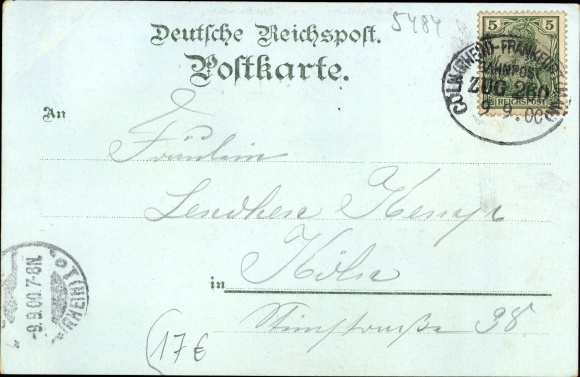 5484
Deutsche Reichspost.
Postkarte.
5 5
REICHSPOST
CÖLN (RHEIN)-FRANKFURT (MAIN)
BAHNPOST
ZUG 260
9 9. 00
An
Fräulein
Kempf
in Köln
38
-9.9.00.7-8N.
(RHEIN)
17€